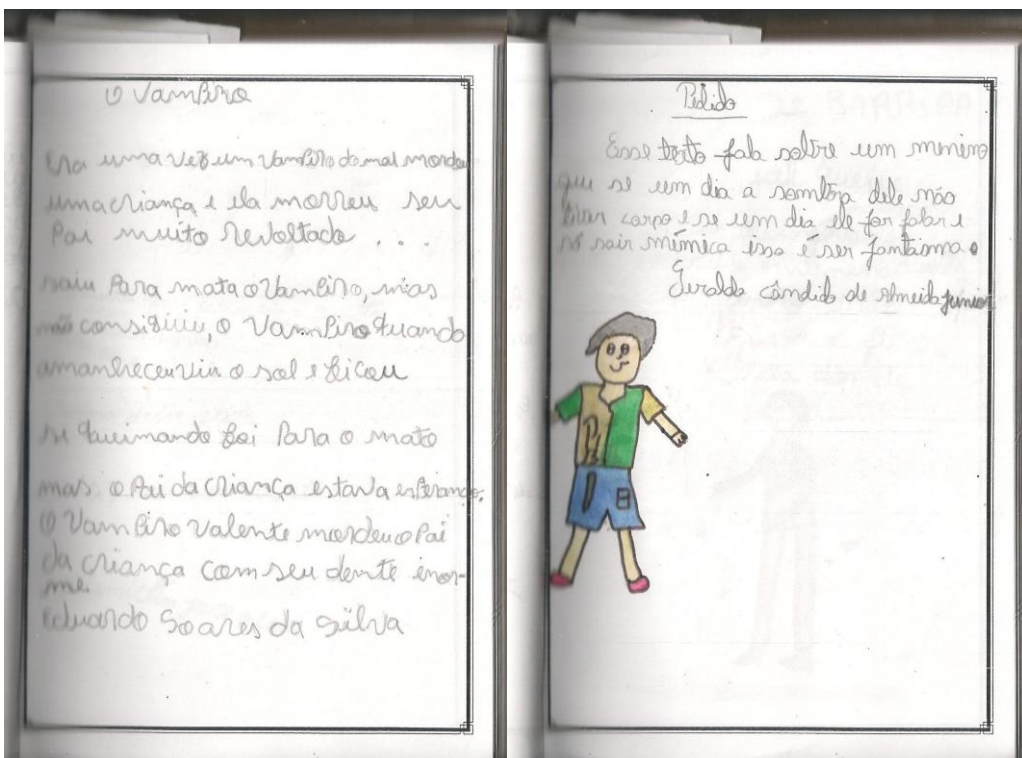 O Vampiro
Era uma vez um vampiro do mal mordeu
uma criança e ela morreu seu
Pai muito revoltado...
saiu Para mata o Vampiro, mas
não consiguiu, o Vampiro quando
amanheceu viu o sol e ficou
se queimando foi Para o mato
mas o Pai da criança estava esperando.
O Vampiro valente mordeu o Pai
da criança com seu dente enor-
me.
Eduardo Soares da Silva
Pedido
Esse texto fala sobre um menino
que se um dia a sombra dele não
tiver corpo e se um dia ele for falar e
só sair mímica isso é ser fantasma.
Geraldo cândido de Almeida junior